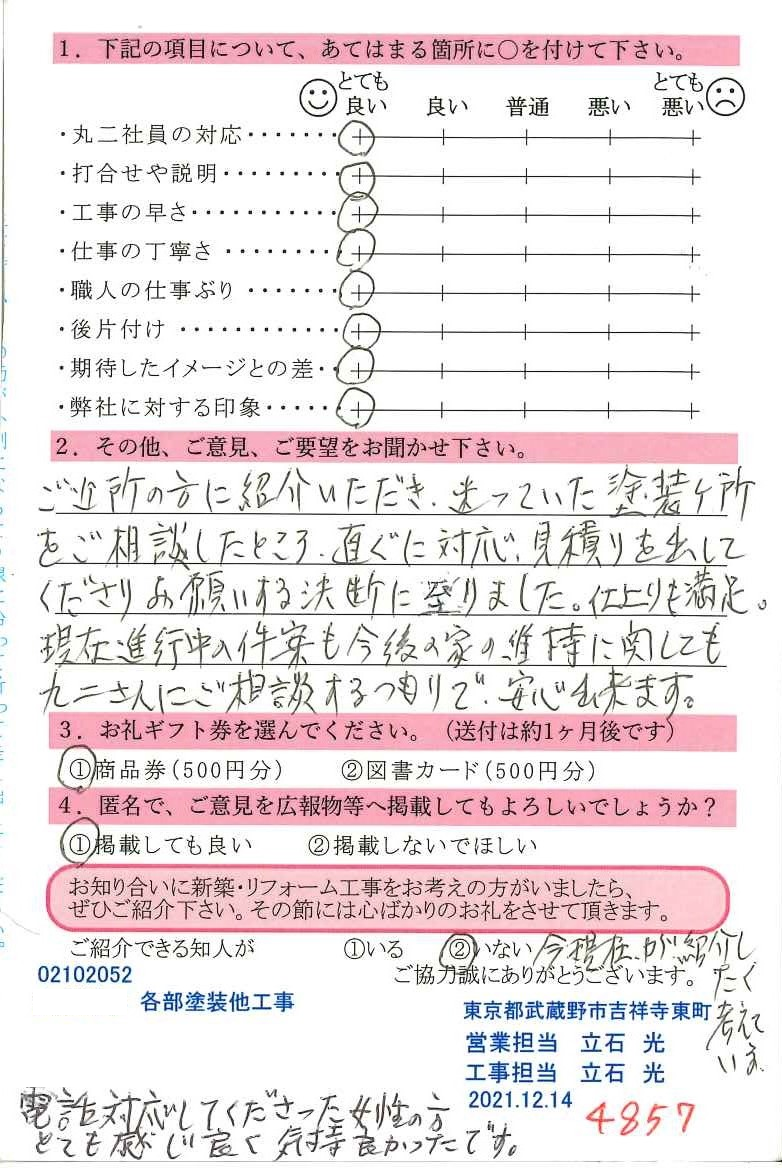 1. 下記の項目について、あてはまる箇所に○を付けて下さい。
とても良い 良い 普通 悪い とても悪い
・丸二社員の対応・・・・・・・
・打合せや説明・・・・・・・・
・工事の早さ・・・・・・・・・・・
・仕事の丁寧さ ・・・・・・・・
・職人の仕事ぶり ・・・・・・・
・後片付け ・・・・・・・・・・・・
・期待したイメージとの差・・
・弊社に対する印象・・・・・・
2. その他、ご意見、ご要望をお聞かせ下さい。
ご近所の方に紹介いただき、迷っていた塗装ケ所
をご相談したところ、直ぐに対応、見積りを出して
くださりお願いする決断に至りました。仕上りも満足。
現在進行中の件案も今後の家の維持に関しても
丸二さんにご相談するつもりで、安心出来ます。
3. お礼ギフト券を選んでください。(送付は約1ヶ月後です)
①商品券(500円分) ②図書カード(500円分)
4. 匿名で、ご意見を広報物等へ掲載してもよろしいでしょうか?
①掲載しても良い ②掲載しないでほしい
お知り合いに新築・リフォーム工事をお考えの方がいましたら、
ぜひご紹介下さい。その節には心ばかりのお礼をさせて頂きます。
ご紹介できる知人が ①いる ②いない 今現在、が紹介し
たく
考えて
います
ご協力誠にありがとうございます。
02102052
各部塗装他工事
東京都武蔵野市吉祥寺東町
営業担当 立石 光
工事担当 立石 光
2021.12.14
4857
電話対応してくださった女性の方
とても感じ良く気持良かったです。